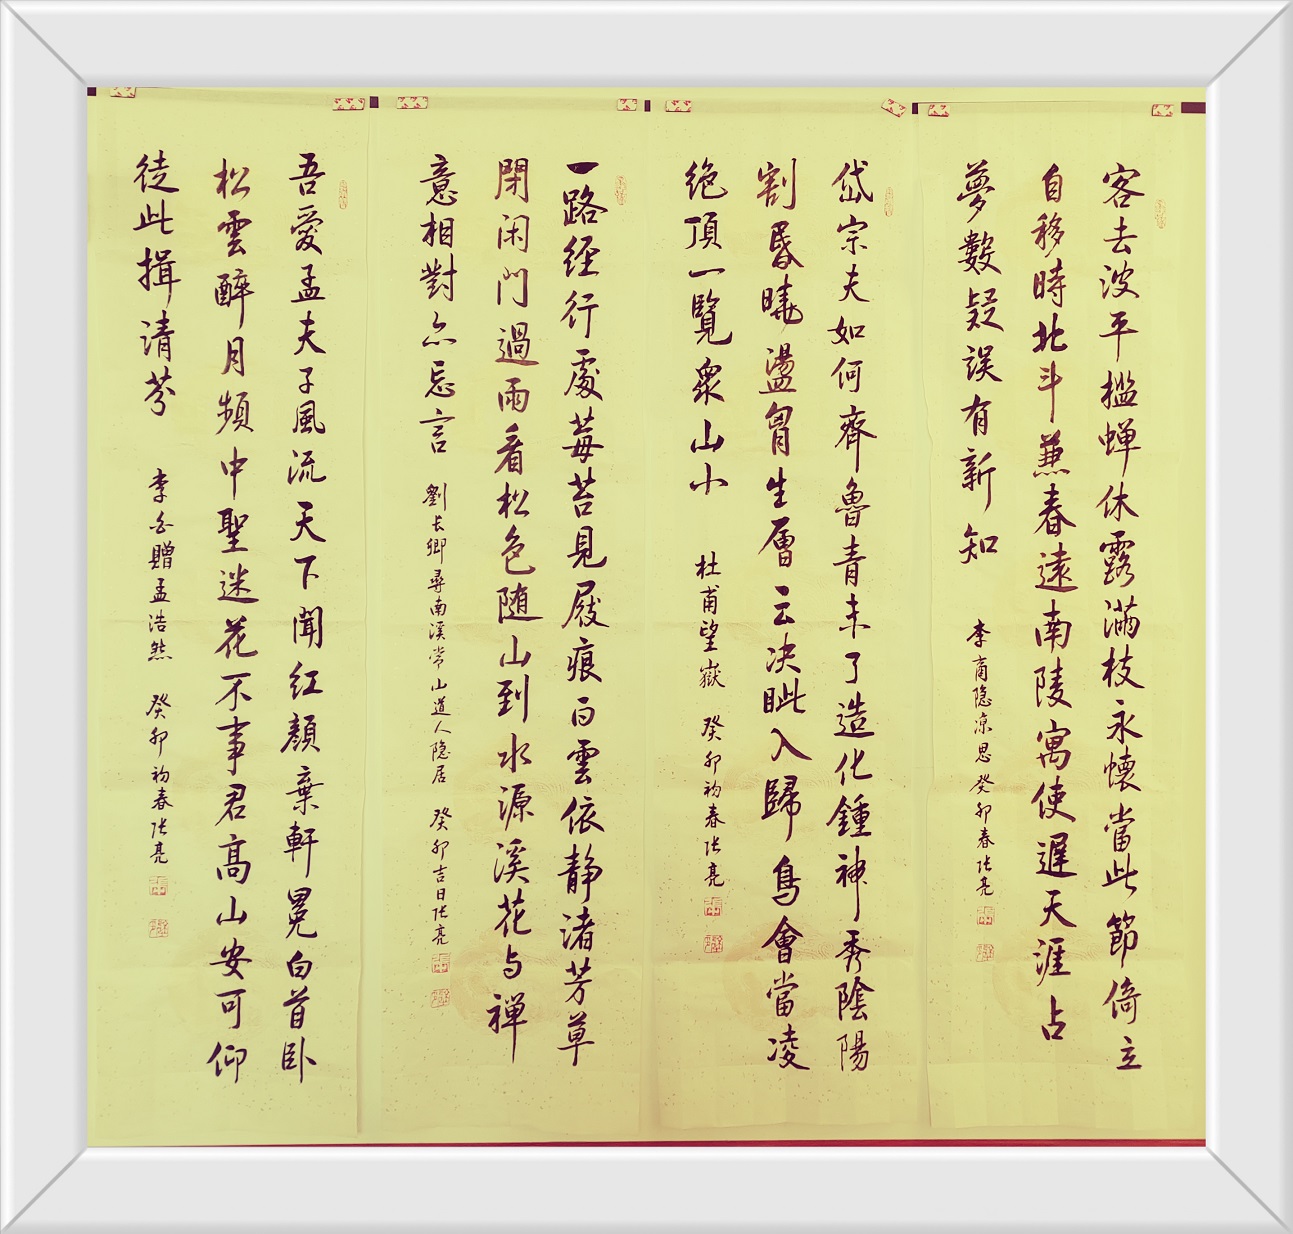 客去波平槛蝉休露满枝永懷當此節倚立
自移時北斗兼春遠南陵寓使遲天涯占
夢數疑误有新知
李商隐凉思癸卯春张亮
岱宗夫如何齊魯青未了造化鍾神秀陰陽
割昏曉盪胷生層云决眦入歸鳥會當凌
绝頂一覽衆山小
杜甫望嶽 癸卯初春张亮
一路经行處莓苔見屐痕白雲依静渚芳草
閉闲门過雨看松色随山到水源溪花与禅
意相對亦忘言
劉长卿尋南溪常山道人隐居 癸卯吉日张亮
吾愛孟夫子風流天下聞红顔棄軒冕白首卧
松雲醉月頻中聖迷花不事君高山安可仰
徒此揖清芬
李白贈孟浩然 癸卯初春张亮